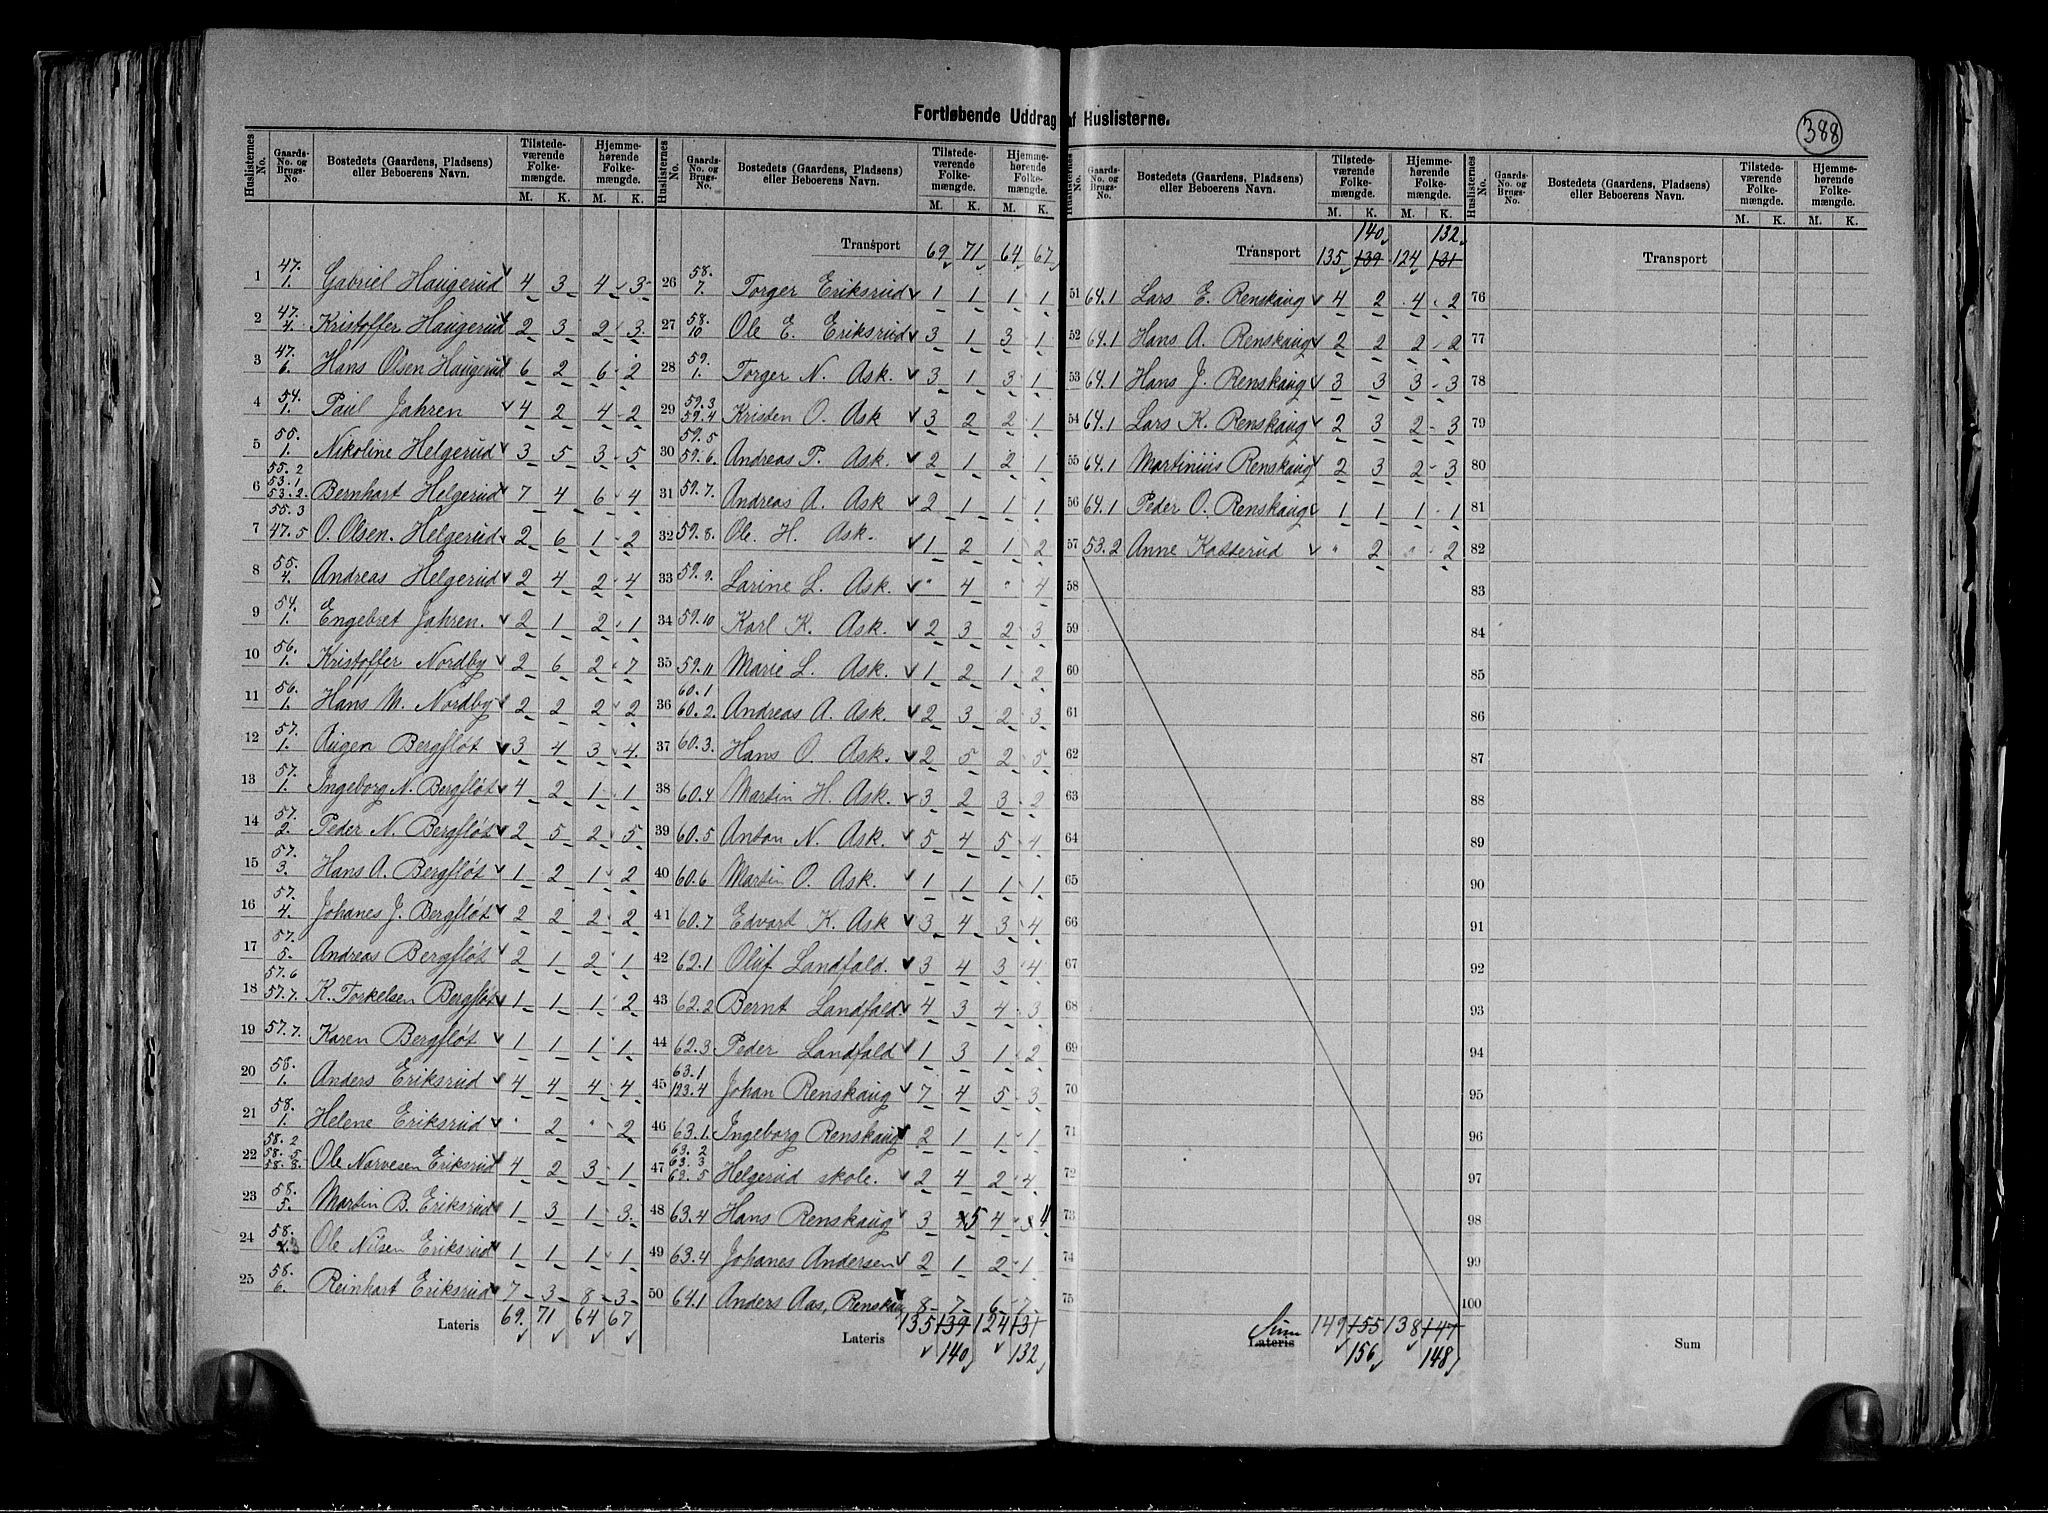 Fortløbende Uddrag af Huslisterne.
388
Huslisternes No. Gaards-No. og Brugs-No. Bostedets (Gaardens, Pladsens) eller Beboerens Navn. Tilstede-værende Folke-mængde. Hjemme-hørende Folke-mængde.
M. K. M. K.
1 47. 1. Gabriel Haugerud 4 3 4 3
2 47. 4. Kristoffer Haugerud 2 3 2 3
3 47. 6. Hans Olsen Haugerud 6 2 6 2
4 54. 1. Paul Jahren 4 2 4 2
5 55. 1. Nikoline Helgerud 3 5 3 5
6 55.2 53.1 53.2. 55.3 Bernhart Helgerud 7 4 6 4
7 47.5 O. Olsen. Helgerud 2 6 1 2
8 55. 4. Andreas Helgerud 2 4 2 4
9 54. 1. Engebret Jahren. 2 1 2 1
10 56. 1. Kristoffer Nordby 2 6 2 7
11 56. 1. Hans M. Nordby 2 2 2 2
12 57. 1. Augen Bergfløt 3 4 3 4
13 57. 1. Ingeborg N. Bergfløt 4 2 1 1
14 57. 2. Peder N. Bergfløt 2 5 2 5
15 57. 3. Hans A. Bergfløt 1 2 1 2
16 57. 4. Johanes J. Bergfløt 2 2 2 2
17 57. 5. Andreas Bergfløt 2 1 2 1
18 57.6 57.7. K. Torkelsen Bergfløt 1 1 1 2
19 57.7. Karen Bergfløt 1 1 1 1
20 58. 1. Anders Eriksrud 4 4 4 4
21 58. 1. Helene Eriksrud " 2 " 2
22 58.2 58.5 58.8. Ole Narvesen Eriksrud 4 2 3 1
23 58. 5. Martin B. Eriksrud 1 3 1 3
24 58. Ole Nilsen Eriksrud 1 1 1 1
25 58. 6. Reinhart Eriksrud 7 3 8 3
Lateris 69. 71 64 67
Huslisternes No. Gaards-No. og Brugs-No. Bostedets (Gaardens, Pladsens) eller Beboerens Navn. Tilstede-værende Folke-mængde. Hjemme-hørende Folke-mængde.
M. K. M. K.
Transport 69 71 64 67
26 58. 7. Torger Eriksrud 1 1 1 1
27 58. 10 Ole E. Eriksrud 3 1 3 1
28 59. 1. Torger N. Ask. 3 1 3 1
29 59.3 59.4 Kristen O. Ask 3 2 2 1
30 59.5 59.6. Andreas T. Ask. 2 1 2 1
31 59.7. Andreas A. Ask 2 1 1 1
32 59.8. Ole. H. Ask. 1 2 1 2
33 59.9. Larine L. Ask. " 4 " 4
34 59.10 Karl K. Ask. 2 3 2 3
35 59.11 Marie L. Ask. 1 2 1 2
36 60.1 60.2. Andreas A. Ask. 2 3 2 3
37 60.3. Hans O. Ask. 2 5 2 5
38 60.4 Martin H. Ask. 3 2 3 2
39 60.5 Anton N. Ask. 5 4 5 4
40 60.6 Martin O. Ask. 1 1 1 1
41 60.7 Edvart K. Ask 3 4 3 4
42 62.1 Oluf Landfald. 3 4 3 4
43 62.2 Bernt Landfald. 4 3 4 3
44 62.3 Peder Landfald 1 3 1 2
45 63.1 123.4 Johan Renskaug 7 4 5 3
46 63.1. Ingeborg Renskaug 2 1 1 1
47 63.2 63.3 63.5 Helgerud skole. 2 4 2 4
48 63.4 Hans Renskaug 3 5 4 4
49 63.4 Johanes Andersen 2 1 2 1
50 64.1 Anders Aas, Renskaug 8 7 6 7
Lateris 135 139 124 131
140 132
Huslisternes No. Gaards-No. og Brugs-No. Bostedets (Gaardens, Pladsens) eller Beboerens Navn. Tilstede-værende Folke-mængde. Hjemme-hørende Folke-mængde.
M. K. M. K.
140 132
Transport 135 139 124 131
51 64.1 Lars E. Renskaug 4 2 4 2
52 64.1 Hans A. Renskaug 2 2 2 2
53 64.1 Hans J. Renskaug 3 3 3 3
54 64.1 Lars K. Renskaug 2 3 2 3
55 64.1 Martinius Renskaug 2 3 2 3
56 64.1 Peder O. Renskaug 1 1 1 1
57 53.2 Anne Katterud " 2 " 2
58
59
60
61
62
63
64
65
66
67
68
69
70
71
72
73
74
75
Sum
Lateris 149 155 138 147
156 148
Huslisternes No. Gaards-No. og Brugs-No. Bostedets (Gaardens, Pladsens) eller Beboerens Navn. Tilstede-værende Folke-mængde. Hjemme-hørende Folke-mængde.
M. K. M. K.
Transport
76
77
78
79
80
81
82
83
84
85
86
87
88
89
90
91
92
93
94
95
96
97
98
99
100
Sum